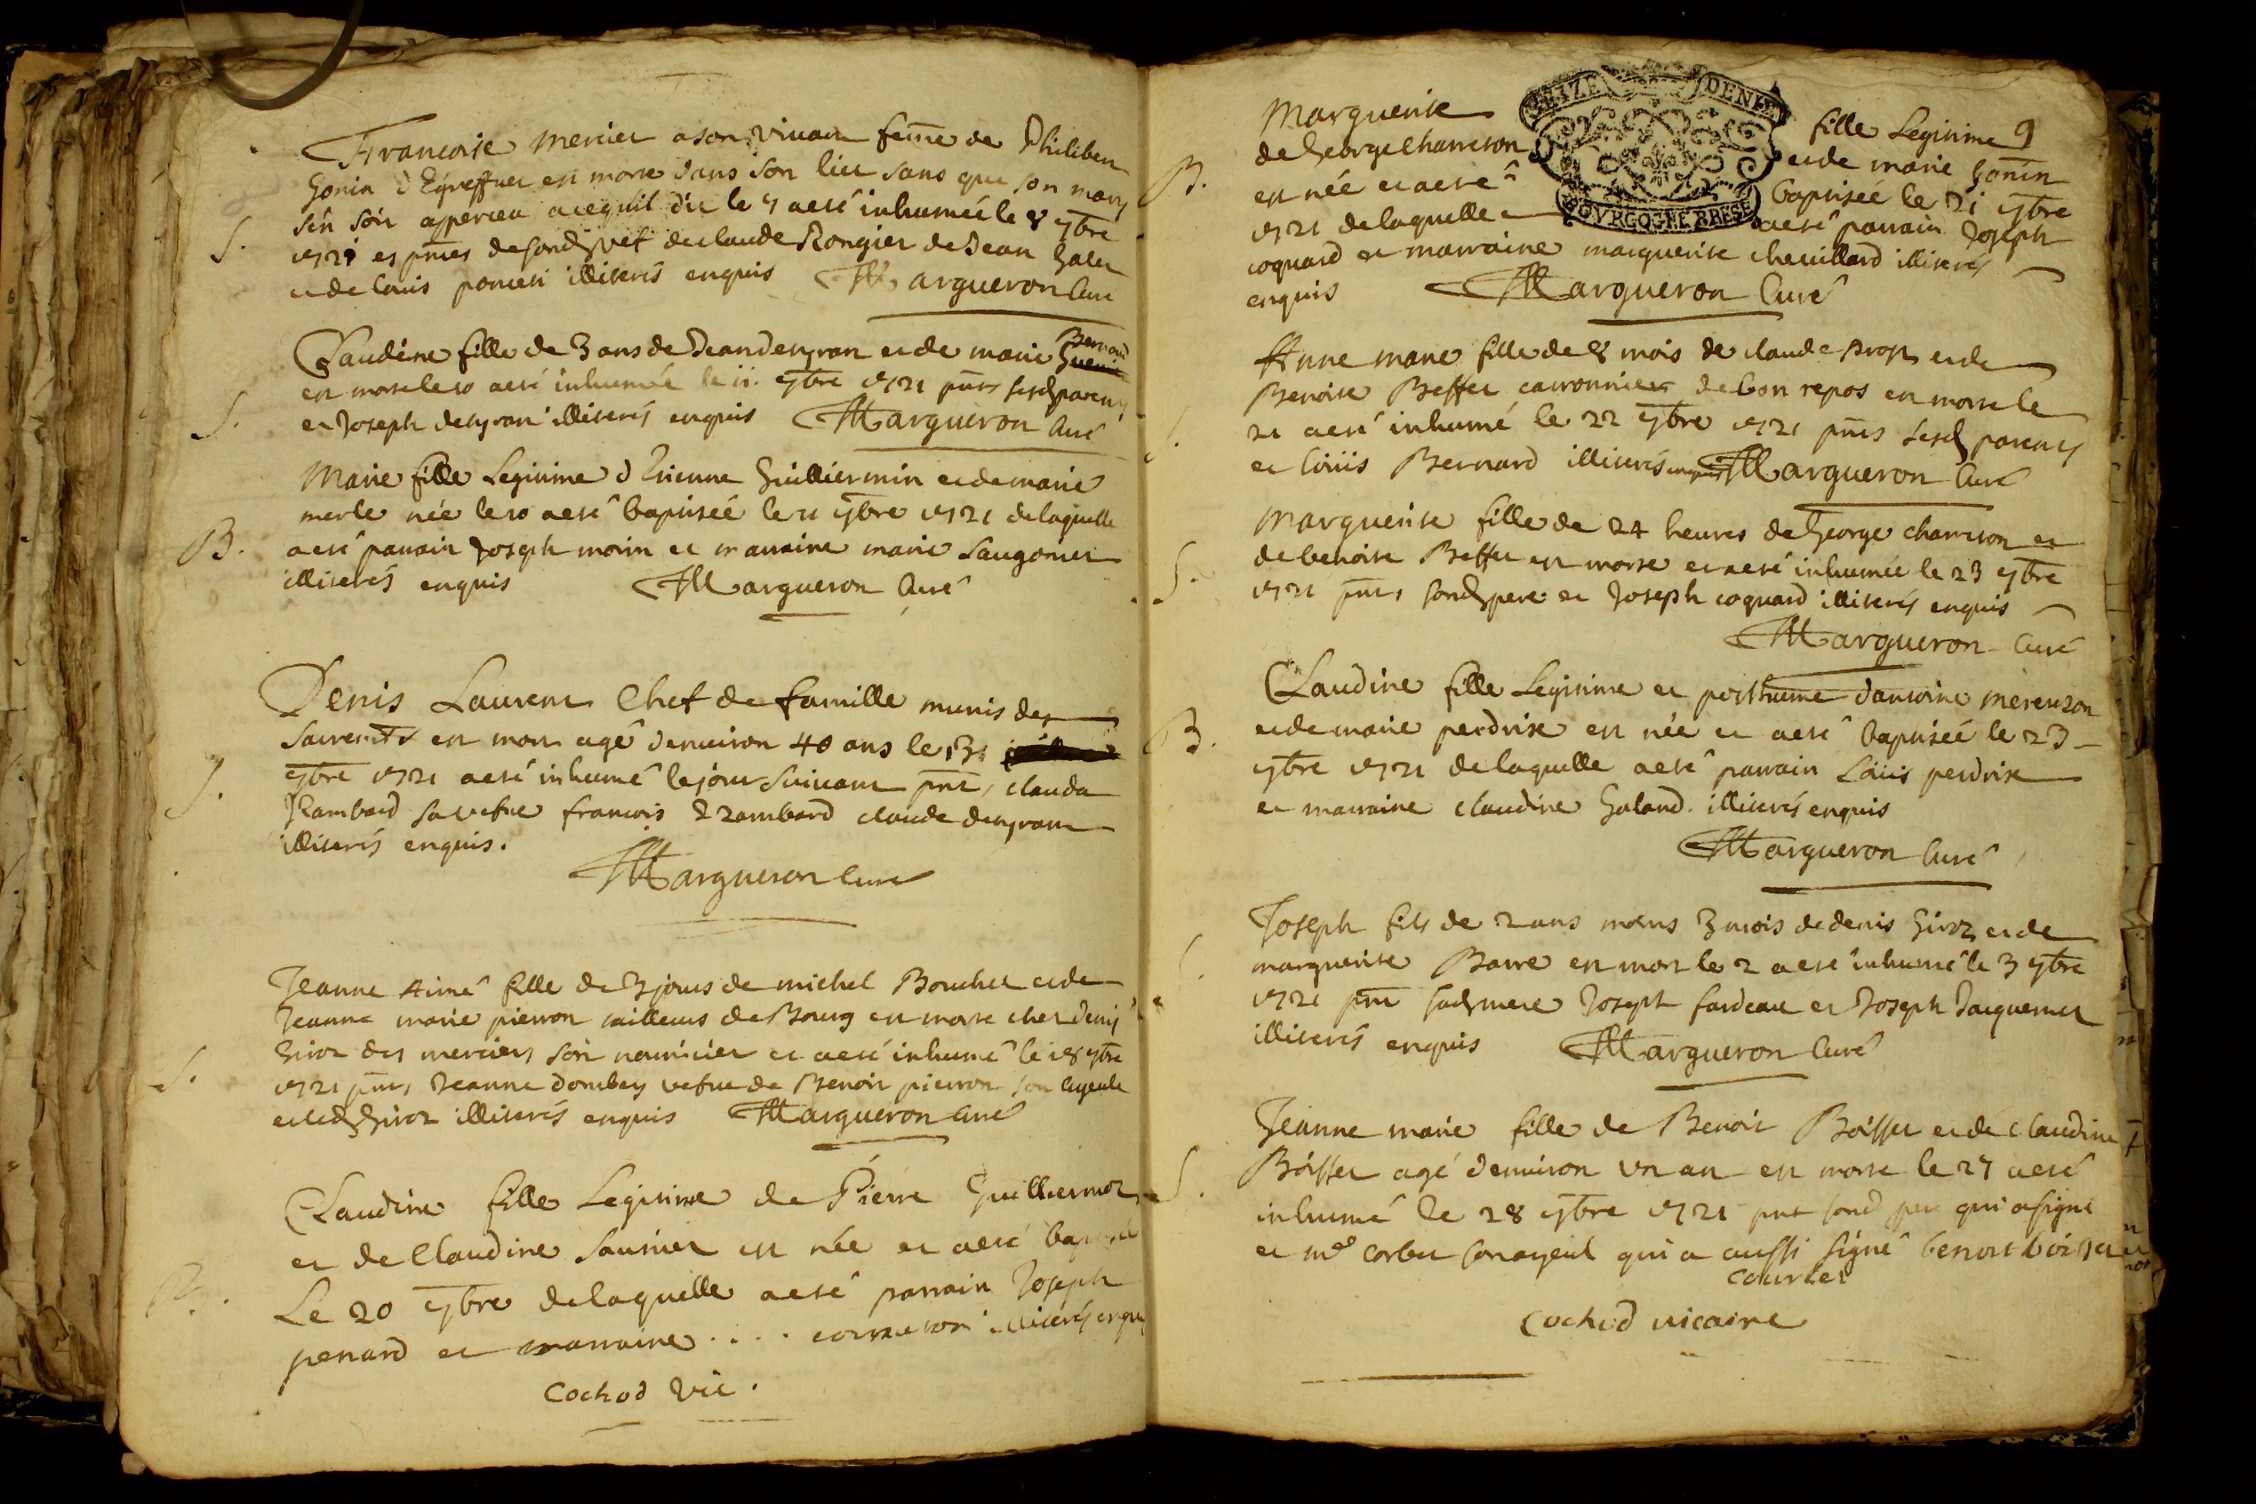 Francoise mercier a son vivant feme de Philibert
Gonin d'Egreffuer est morte dans son lict sans que son mary
s'en soit apperceu a ce quil dit le 7 a esté inhumée le 8 7bre
S.
1721 es pnts de sond vef de claude Rongier de Jean
et de louis illiterés enquis Margueron Curé
Claudine fille de 3 ans de Jean dengran et de marie Bernard
est morte le 10 a esté inhumée le ii. 7bre 1721 pnts sesd parents
S.
et Joseph dengran illiterés enquis Margueron Curé
Marie fille Legitime d'Etienne Guilliermin et de marie
merle née le 10 a esté baptisée le 11 7bre 1721 de laquelle
B.
a esté parrain Joseph morin et marraine marie
illiterés enquis Margueron Curé
Denis Laurent Chef de famille munis des
Sacrements est mort agé d'environ 40 ans le 13
7bre 1721 a esté inhumé le jour suivant pnts, clauda
S.
Rambard sa vefue francois Rambard claude dengran
illiterés enquis.
Margueron Curé
Jeanne Aimé fille de 3 jours de michel Bouchet et de
Jeanne marie pierron tailleurs de Bourg est morte chez denis
Giroz des merciers son nourricier et a esté inhumé le 18 7bre
S.
1721 pnts, Jeanne dombey vefue de Benoit pierron son ayeule
et led Giroz illiterés enquis Margueron Curé
Claudine fille Legitime de Pierre Guilliermoz
et de Claudine Saunier est née et a esté baptisée
Le 20 7bre de laquelle a esté parrain Joseph
B.
penard et marraine .... illiterés enquis
Cochod Vic.
SEIZE DENIERS
BOVRGOGNE BRESSE
9
Marguerite fille Legitime
de George Charreton et de marie Gonin
B.
est née et a esté baptisée le 21 7bre
1721 de laquelle a esté parrain Joseph
coquard et marraine marguerite chevillard illiterés
enquis Margueron Curé
Anne marie fille de 8 mois de claude Brost et de
Benoite Beffet carronnier de bon repos est morte le
21 a esté inhumé le 22 7bre 1721 pnts sesd parents
et louis Bernard illiterés enquis Margueron Curé
Marguerite fille de 24 heures de George charreton et
de benoite Beffet est morte et a esté inhumée le 23 7bre
S.
1721 pnts, sond pere et Joseph coquard illiterés enquis
Margueron Curé
Claudine fille Legitime et posthume d'antoine mereuzon
et de marie perdrix est née et a esté baptisée le 23
B.
7bre 1721 de laquelle a esté parrain Louis perdrix
et marraine claudine Galand illiterés enquis
Margueron Curé
Joseph fils de 2 ans moins 3 mois de denis Giroz et de
marguerite Barre est mort le 2 a esté inhumé le 3 7bre
1721 pnt sad mere Joseph fardeau et Joseph Jacquemet
illiterés enquis Margueron Curé
Jeanne marie fille de Benoit Boisset et de claudine
Boisset agé d'environ un an est morte le 27 a esté
S.
inhumé le 28 7bre 1721 pnt sond pere qui a signé
et me corbet son ayeul qui a aussi signé benoit boisset
Cochod vicaire